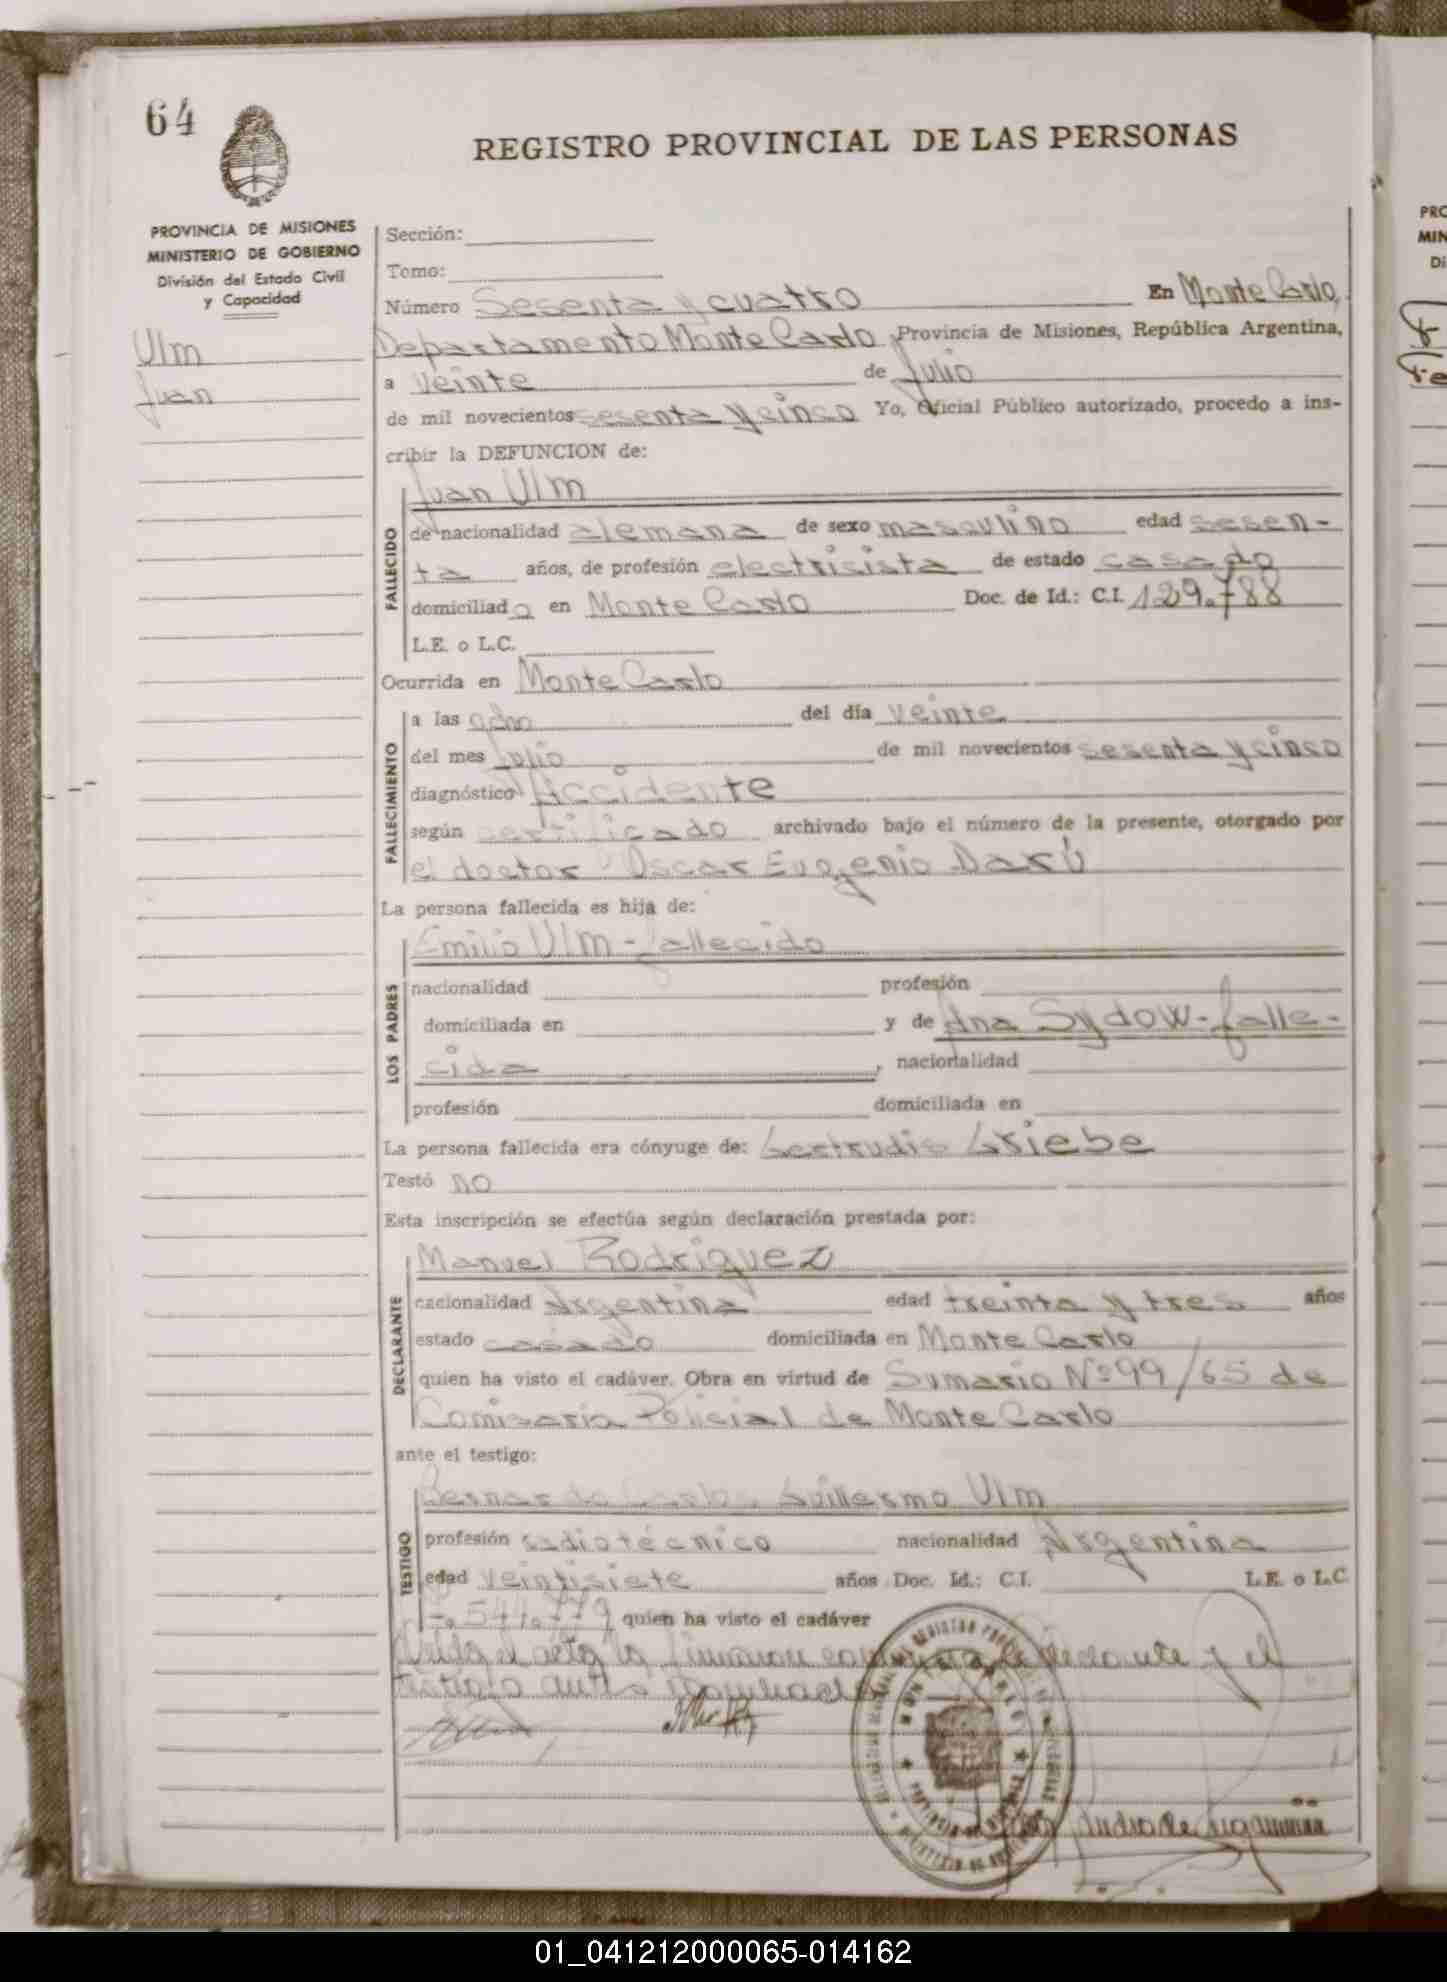 64
REGISTRO PROVINCIAL DE LAS PERSONAS
PROVINCIA DE MISIONES
MINISTERIO DE GOBIERNO
División del Estado Civil
y Capacidad
Ulm
Juan
Sección:
Tomo:
Número Sesenta y cuatro En Monte Carlo,
Departamento Monte Carlo, Provincia de Misiones, República Argentina,
a veinte de Julio
de mil novecientos sesenta y cinco Yo, Oficial Público autorizado, procedo a ins-
cribir la DEFUNCION de:
Juan Ulm
FALLECIDO
de nacionalidad alemana de sexo masculino edad sesen-
ta años, de profesión electrisista de estado casado
domiciliado en Monte Carlo Doc. de Id.: C.I. 129.788
L.E. o L.C.
Ocurrida en Monte Carlo
FALLECIMIENTO
a las ocho del día veinte
del mes julio de mil novecientos sesenta y cinco
diagnóstico Accidente
según certificado archivado bajo el número de la presente, otorgado por
el doctor Oscar Eugenio Darú
La persona fallecida es hija de:
LOS PADRES
Emilio Ulm - fallecido
nacionalidad profesión
domiciliada en y de Ana Sydow - falle-
cida, nacionalidad
profesión domiciliada en
La persona fallecida era cónyuge de: Gertrudis Griebe
Testó no
Esta inscripción se efectúa según declaración prestada por:
DECLARANTE
Manuel Rodriguez
nacionalidad Argentina edad treinta y tres años
estado casado domiciliada en Monte Carlo
quien ha visto el cadáver. Obra en virtud de Sumario Nº 99/65 de
Comisaría Policial de Monte Carlo
ante el testigo:
TESTIGO
Bernardo Carlos Guillermo Ulm
profesión radiotécnico nacionalidad Argentina
edad veintisiete años Doc. Id.: C.I. L.E. o L.C.
7.541.779 quien ha visto el cadáver
Leida el acta la firmaron conmigo el declarante y el
testigo antes nominado
01_041212000065-014162